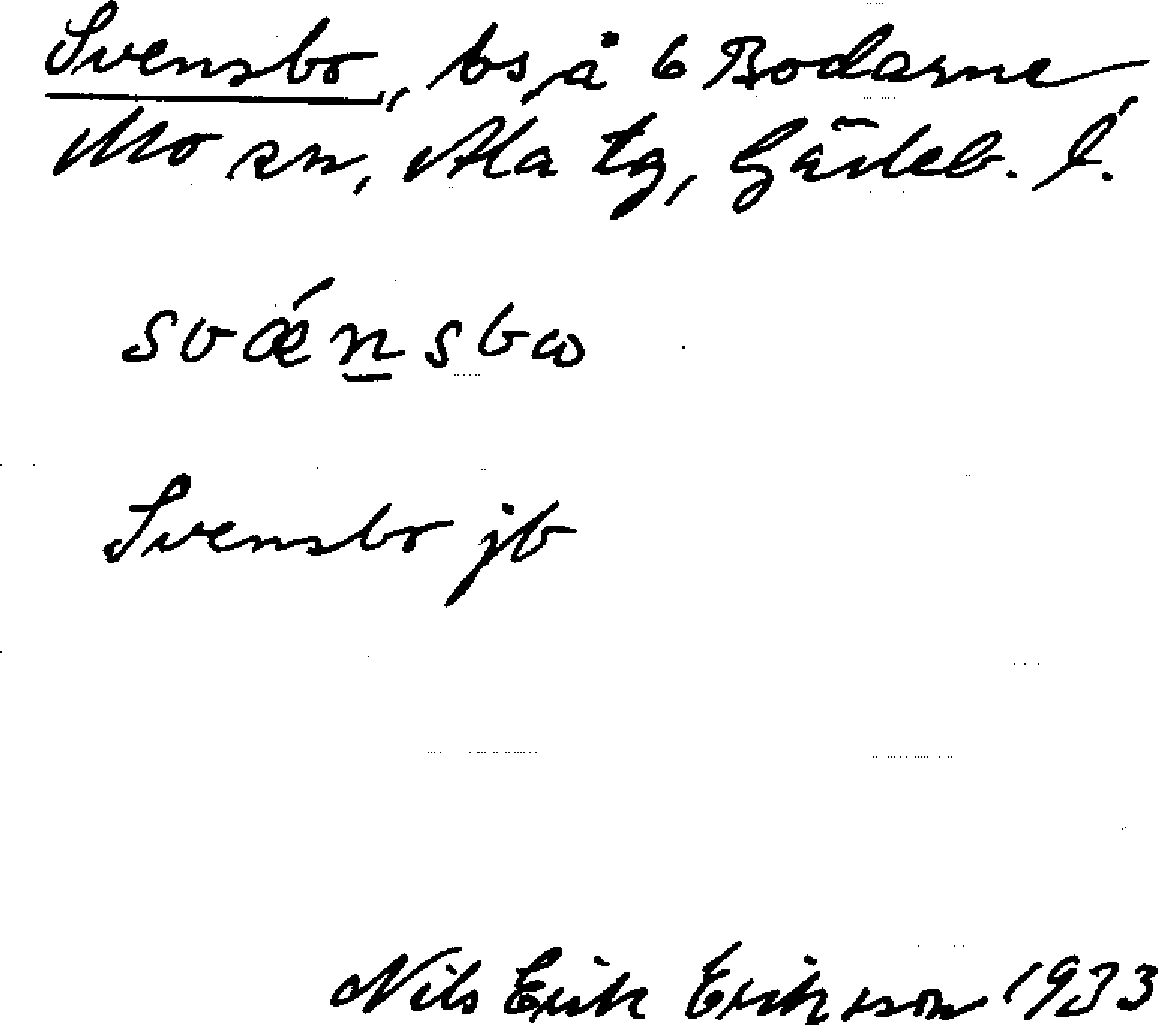 Svensbo, bs å 6 Bodarne
Mo sn, Ala tg, Gävleb. l.
svǽn̲sbω
Svensbo jb
Nils Erik Eriksson 1933